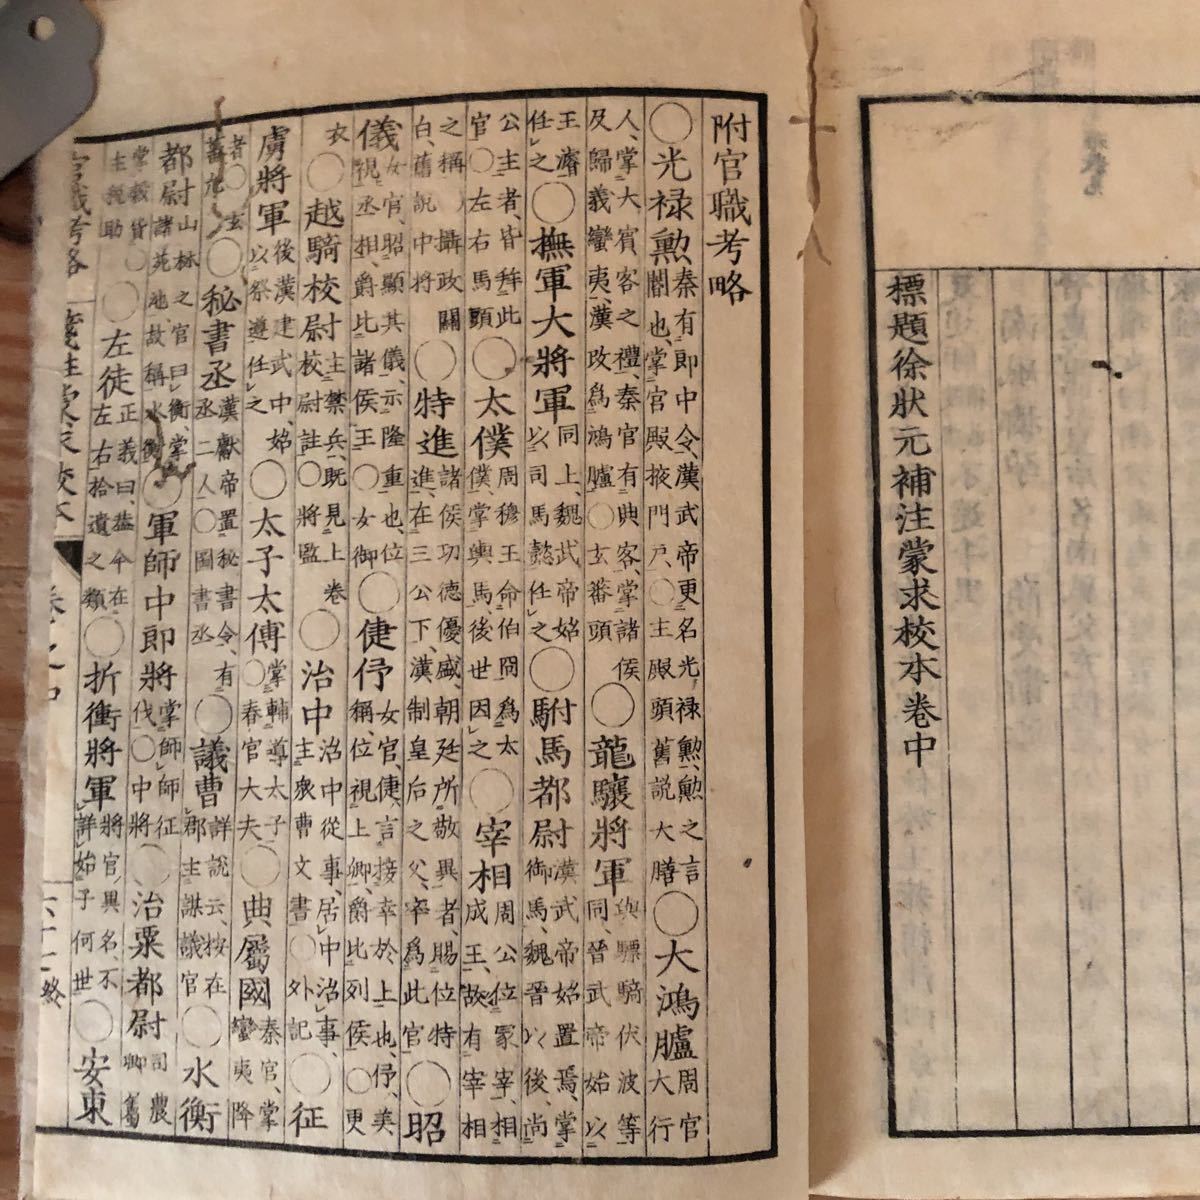 標題徐狀元補注蒙求校本卷中
附官職考略
○光禄勲、秦有郎中令、漢武帝更名光禄勲、勲之言閽也、掌宮殿掖門戸、○主殿頭舊説大膳○大鴻臚周官大行
人、掌大賓客之禮、秦官有典客、掌諸侯及歸義蠻夷、漢改爲鴻臚○玄蕃頭○龍驤將軍與驃騎伏波等同、晉武帝始以
王濬任之○撫軍大將軍同上、魏武帝始以司馬懿任之○駙馬都尉漢武帝始置焉、掌御馬、魏晉以後、尚
公主者、皆拜此官○左右馬頭○太僕周穆王命伯冏爲太僕、掌輿馬、後世因之○宰相周公位冢宰、相成王、故有宰相
之稱攝政關白、舊説中將○特進諸侯功德優盛、朝廷所敬異者、賜位特進、在三公下、漢制皇后之父、率爲此官○昭
儀女官、昭顯其儀、示隆重也、位視丞相、爵比諸侯王○女御○倢伃女官、倢、言接幸於上也、伃、美稱、位視上卿、爵比列侯○更
衣○越騎校尉主禁兵、既見上卷校尉註○將監○治中治中從事、居中治事、主衆曹文書○外記○征
虜將軍後漢建武中、始以祭遵任之○太子太傅掌輔導太子○春官大夫○典屬國秦官、掌蠻夷降
者○玄蕃允○秘書丞漢獻帝置秘書令、有丞二人○圖書丞○議曹詳説云、按在郡主謀議官○水衡
都尉山林之官曰衡、掌諸苑池、故稱水衡○軍師中郎將掌師師征伐○中將○治粟都尉司農卿舊
掌穀貨○主税助○左徒正義曰、蓋今在左右拾遺之類○折衝將軍將官異名、不詳始于何世○安東
官職考略 箋註蒙求校本 卷之中 六十二終